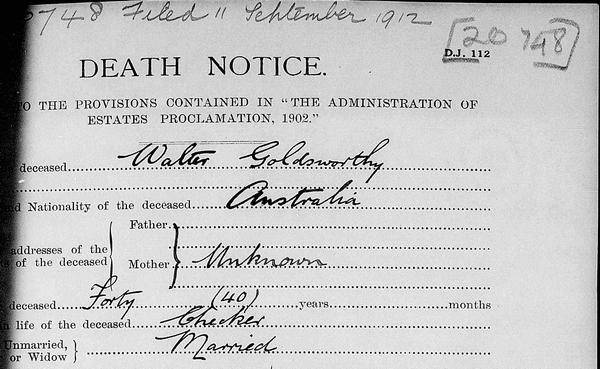 748 Filed 11 September 1912
[20748]
D.J. 112
DEATH NOTICE.
TO THE PROVISIONS CONTAINED IN "THE ADMINISTRATION OF
ESTATES PROCLAMATION, 1902."
deceased Walter Goldsworthy
Nationality of the deceased Australia
Father
addresses of the
of the deceased
Mother Unknown
deceased Forty (40) years months
life of the deceased Checker
Unmarried,
or Widow Married